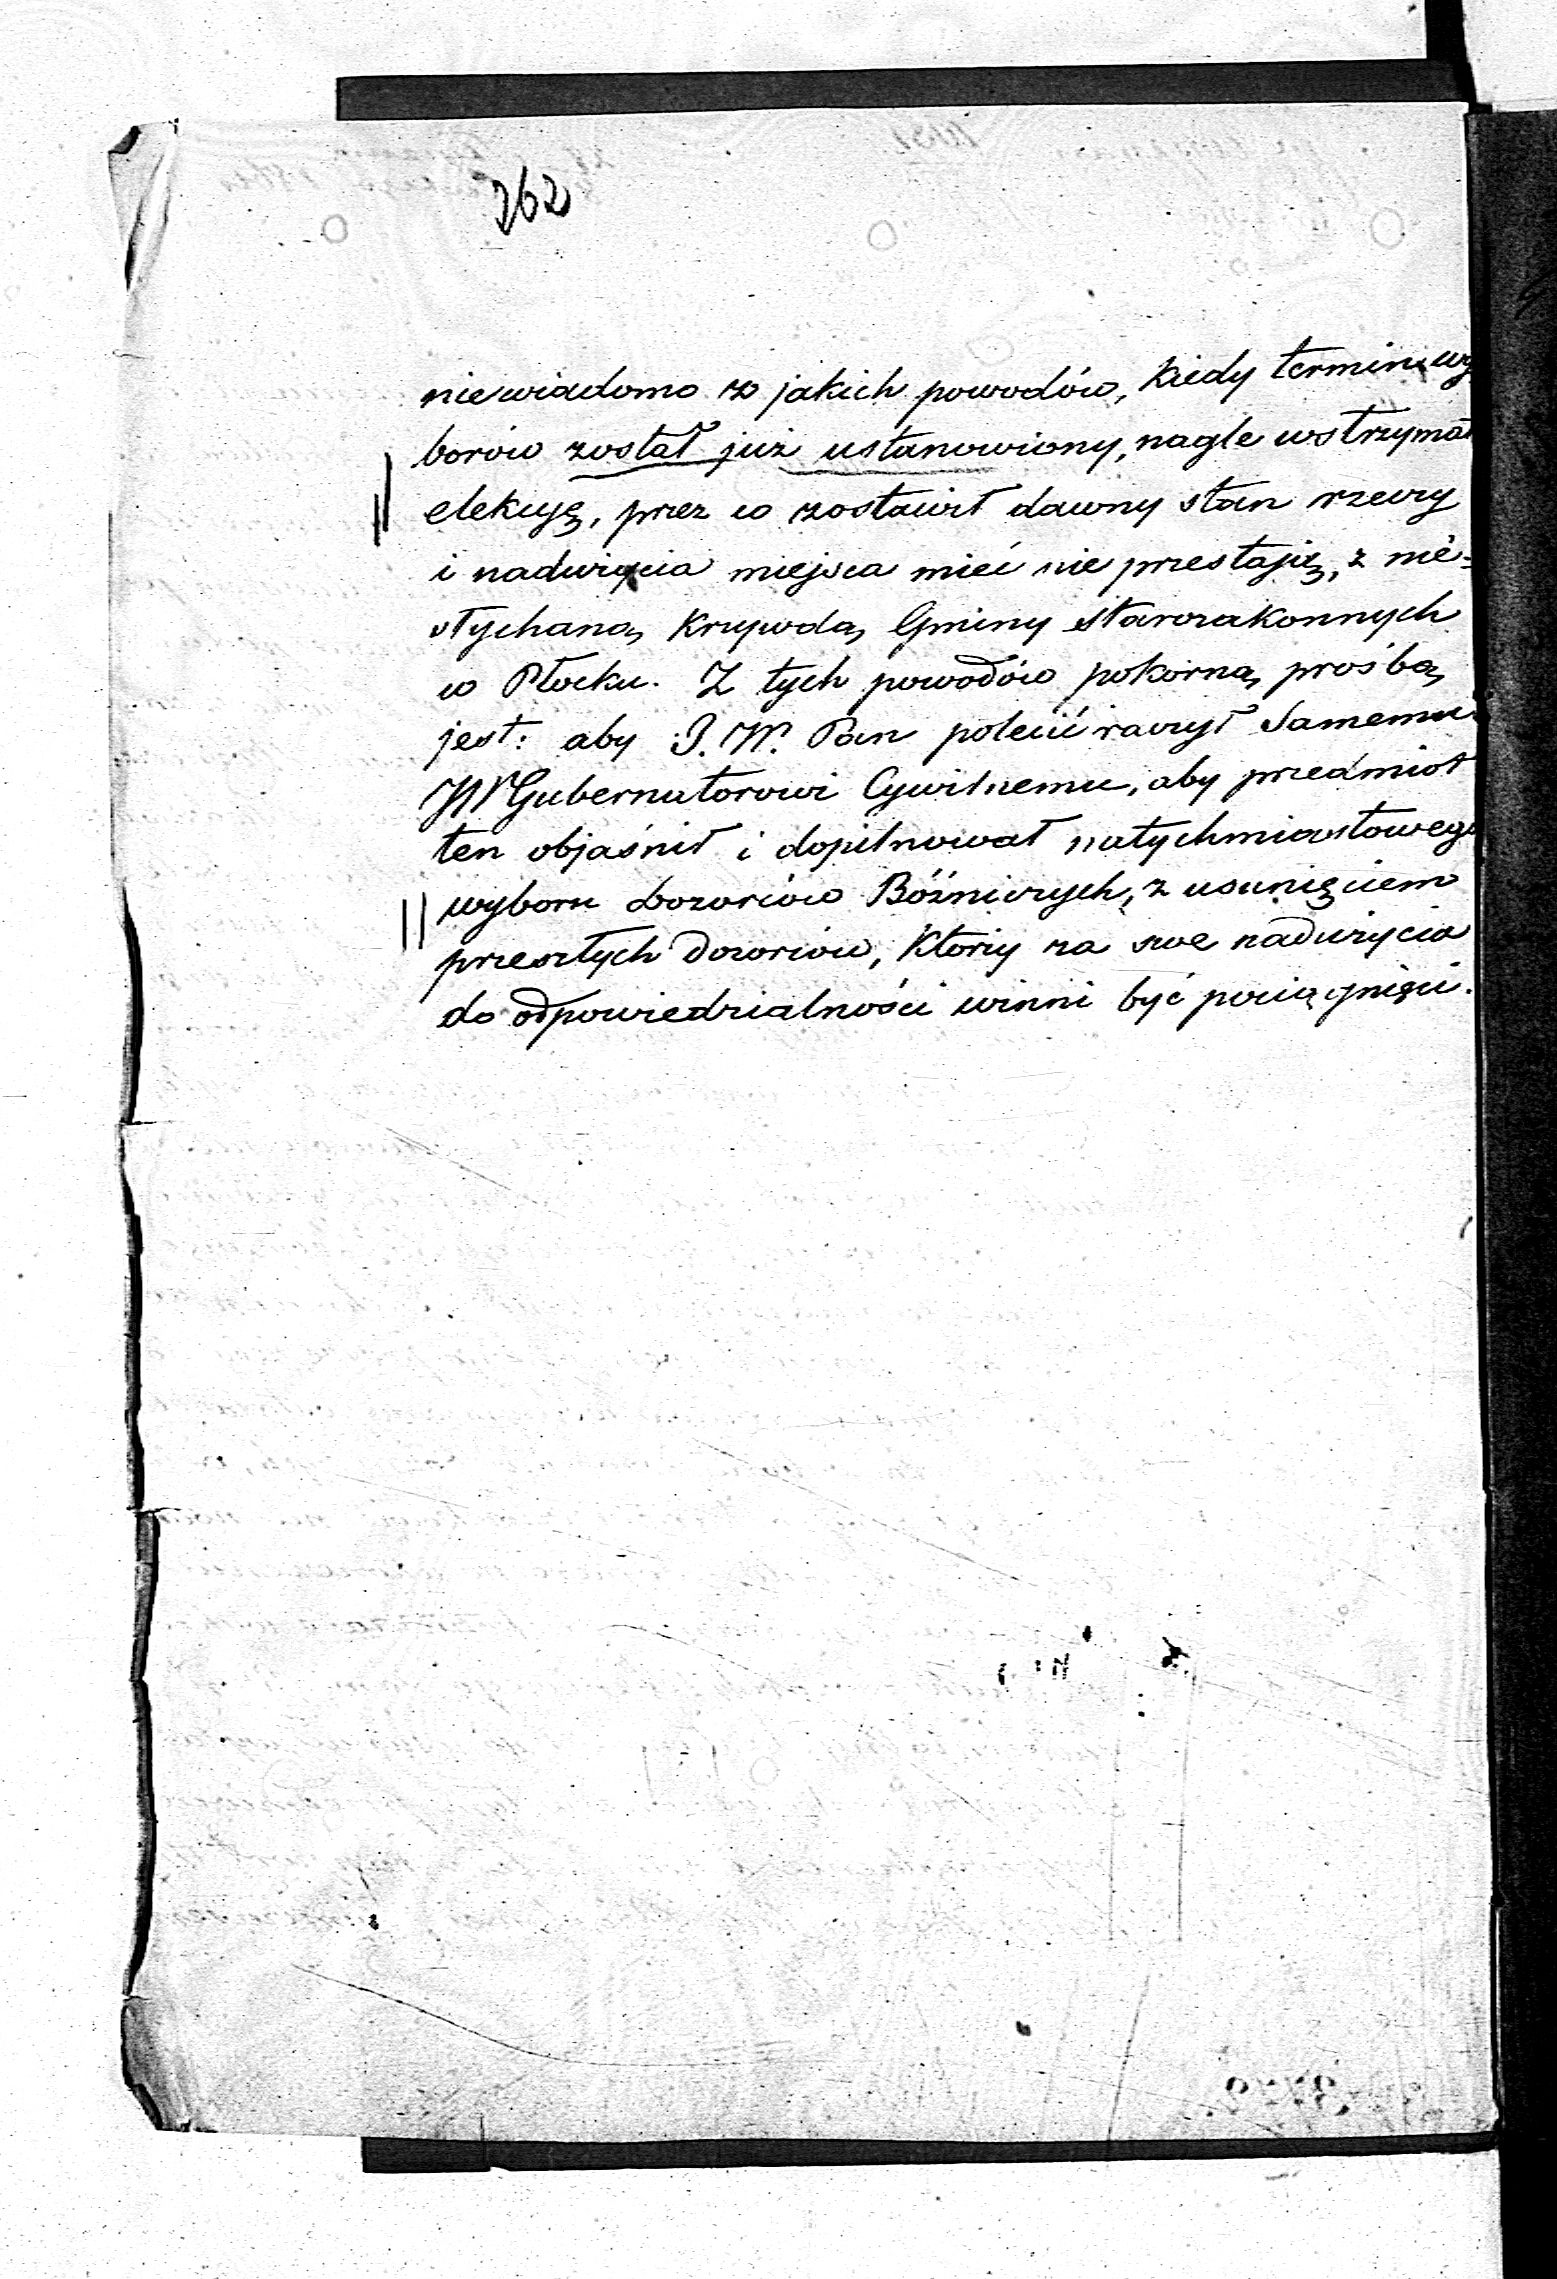 262
niewiadomo z jakich powodów, kiedy termin wy
borów został już ustanowiony, nagle wstrzymał
elekcyę, przez co zostawił dawny stan rzeczy
i nadużycia miejsca mieć nie przestają, z nie-
słychaną krzywdą Gminy starozakonnych
w Płocku. Z tych powodów pokorną prośbą
jest: aby J. W. Pan polecić raczył Samemu
JWGubernatorowi Cywilnemu, aby przedmiot
ten objaśnił i dopilnował natychmiastowego
wyboru dozorców Bóżniczych, z usunięciem
przeszłych Dozorców, którzy za swe nadużycia
do odpowiedzialności winni być pociągnięci.